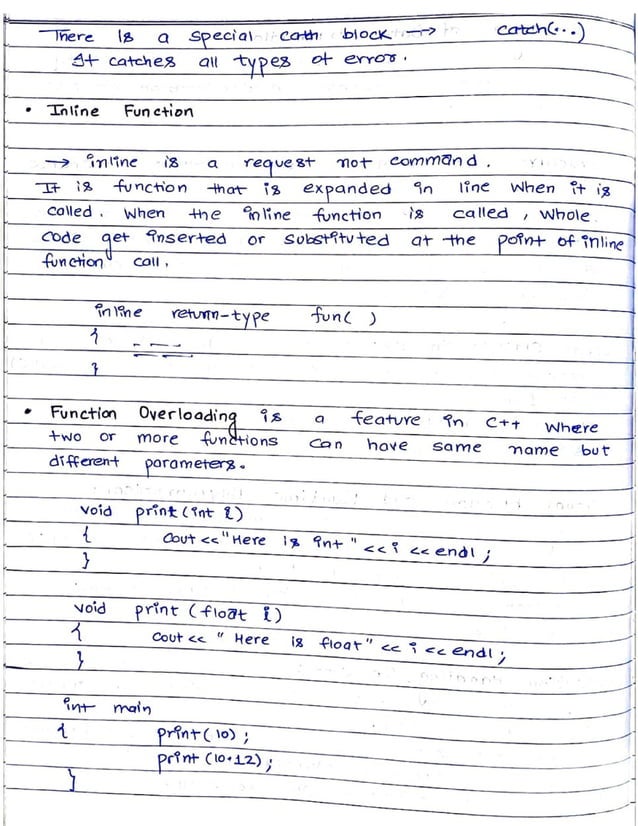 There is a special cath block → catch(...)
It catches all types of error.
• Inline Function
→ inline is a request not command.
It is function that is expanded in line when it is
called. When the inline function is called, whole
code get inserted or substituted at the point of inline
function call.
inline return-type fun( )
{
}
• Function Overloading is a feature in C++ where
two or more functions can have same name but
different parameters.
void print(int i)
{ cout <<"Here is int "<<i <<endl;
}
void print (float i)
{ cout << " Here is float" << i << endl;
}
int main
{ print(10);
print (10.12);
}